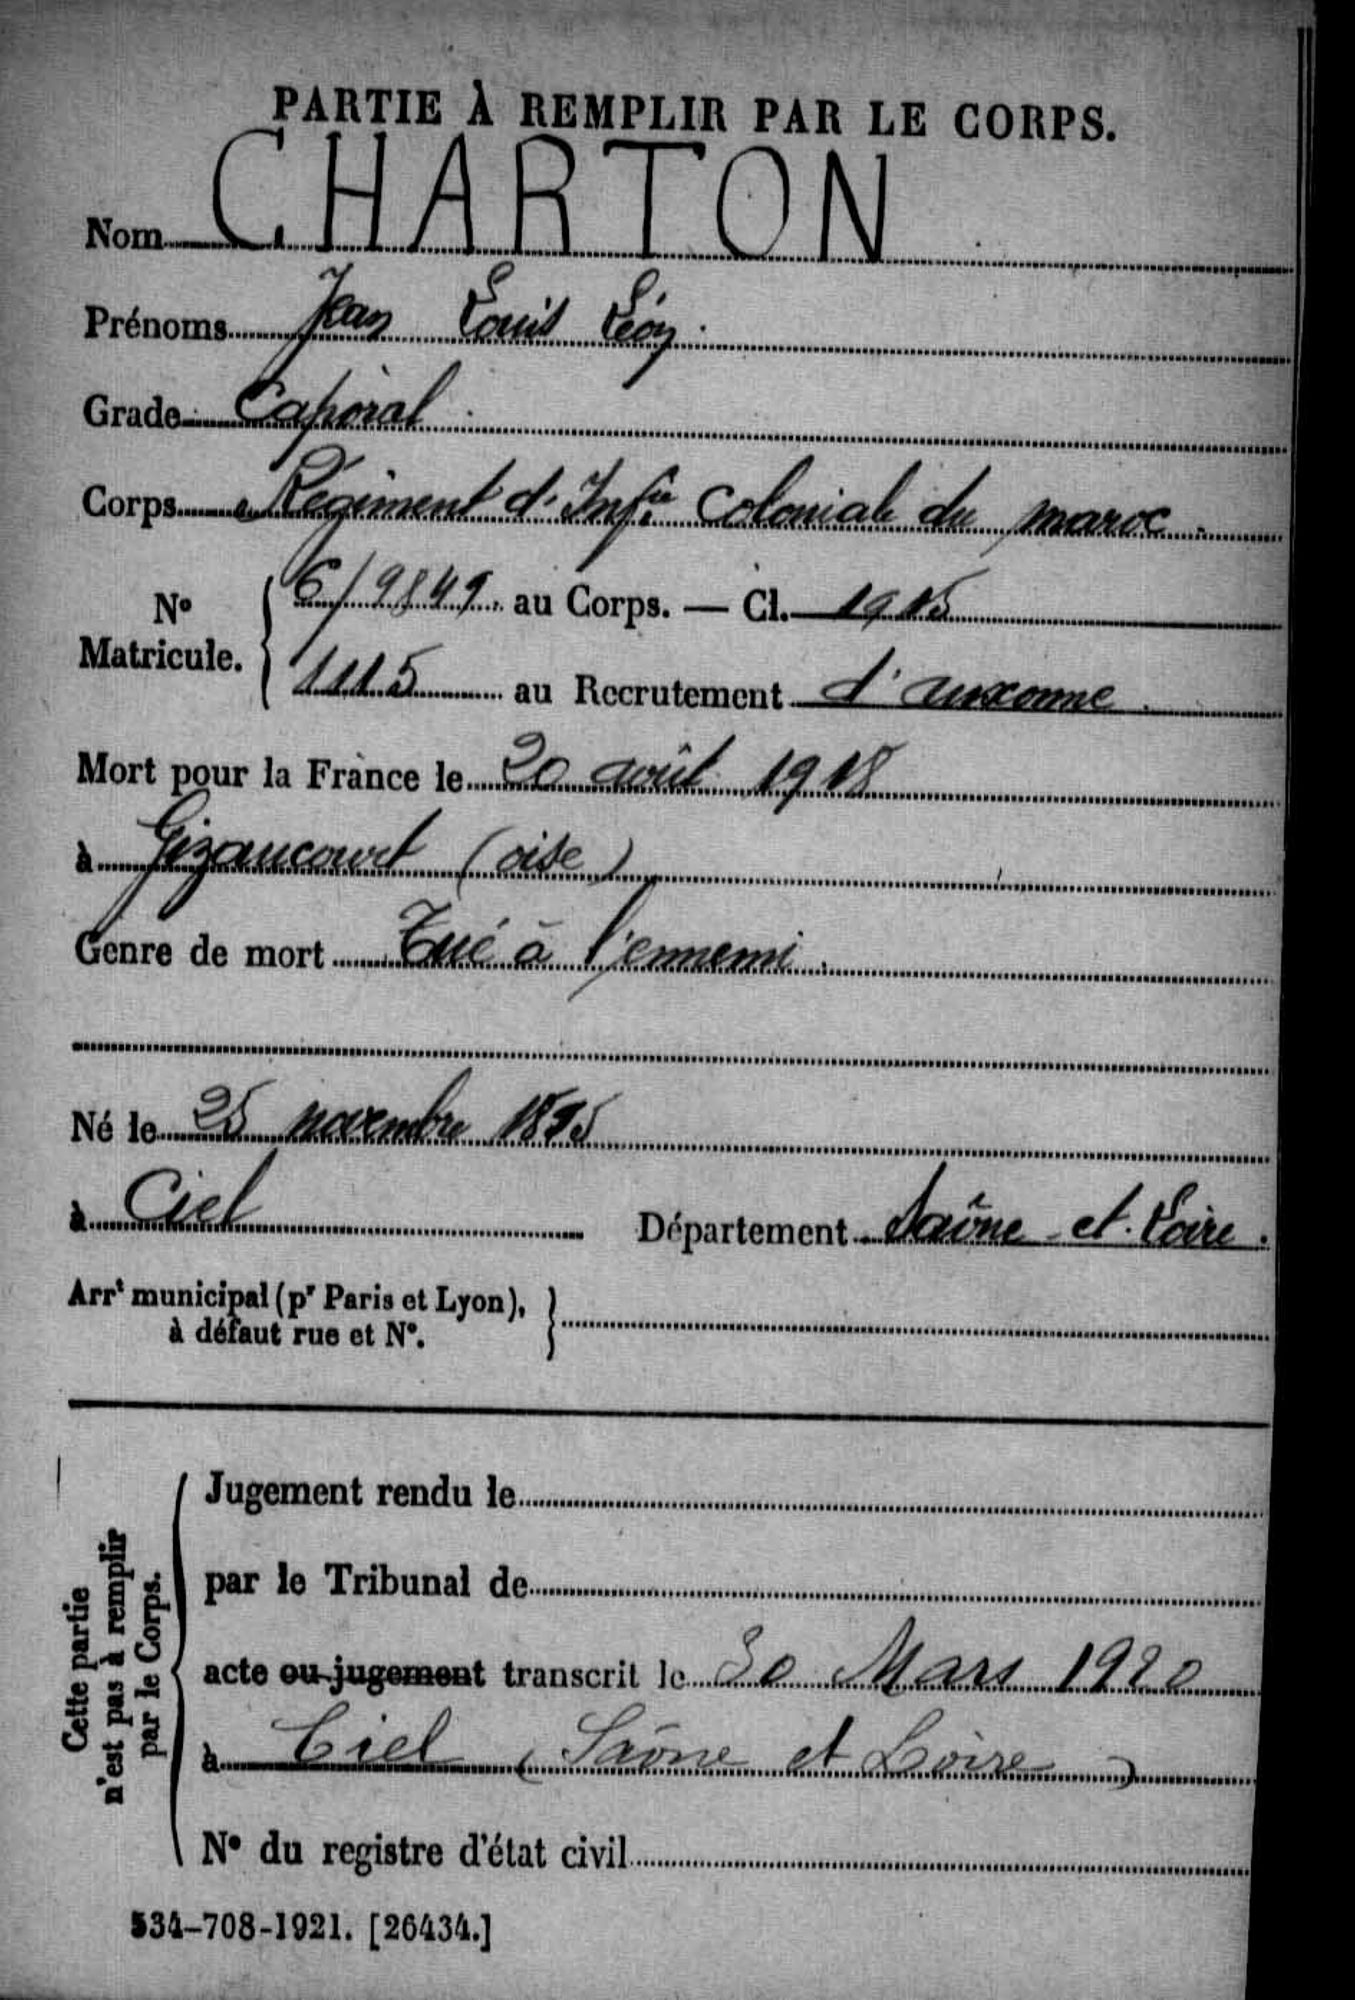 PARTIE À REMPLIR PAR LE CORPS.
Nom CHARTON
Prénoms Jean Louis Léon.
Grade Caporal.
Corps Régiment d'Infie Coloniale du maroc.
No Matricule. { 6/9849. au Corps. — Cl. 1915
1115 au Recrutement d'auxonne.
Mort pour la France le 20 août 1918
à Gizaucourt (oise)
Genre de mort Tué à l'ennemi.
Né le 25 novembre 1895
à Ciel Département Saône-et-Loire.
Arrt municipal (pr Paris et Lyon),
à défaut rue et No. }
Cette partie
n'est pas à remplir
par le Corps.
Jugement rendu le
par le Tribunal de
acte ou jugement transcrit le 30 Mars 1920
à Ciel (Saône et Loire)
No du registre d'état civil
534-708-1921. [26434.]